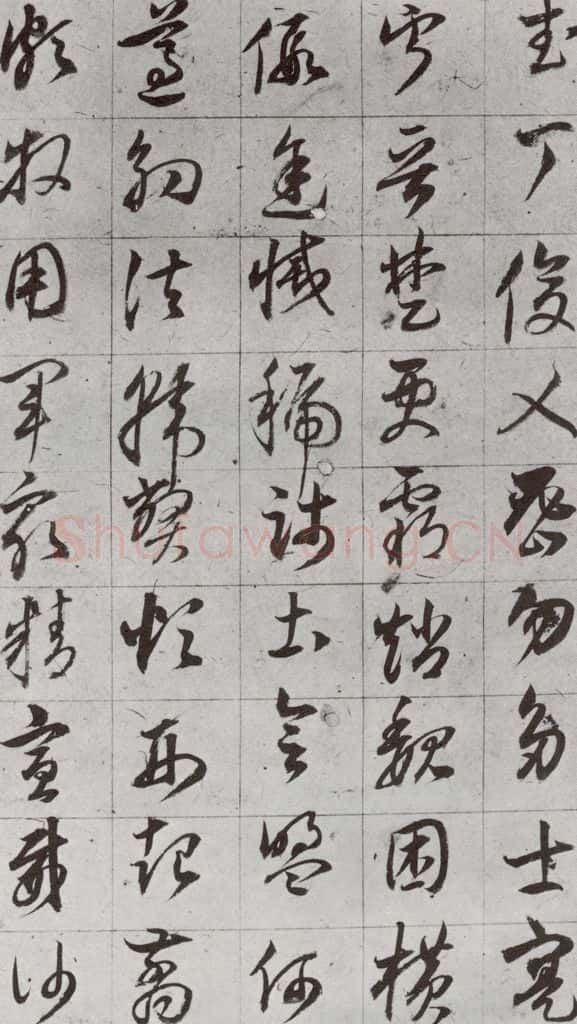 武丁俊乂密勿多士寔
寧晉楚更霸趙魏困橫
假途滅虢踐土會盟何
遵約法韓弊煩刑起翦
頗牧用軍最精宣威沙
Shufawang.CN